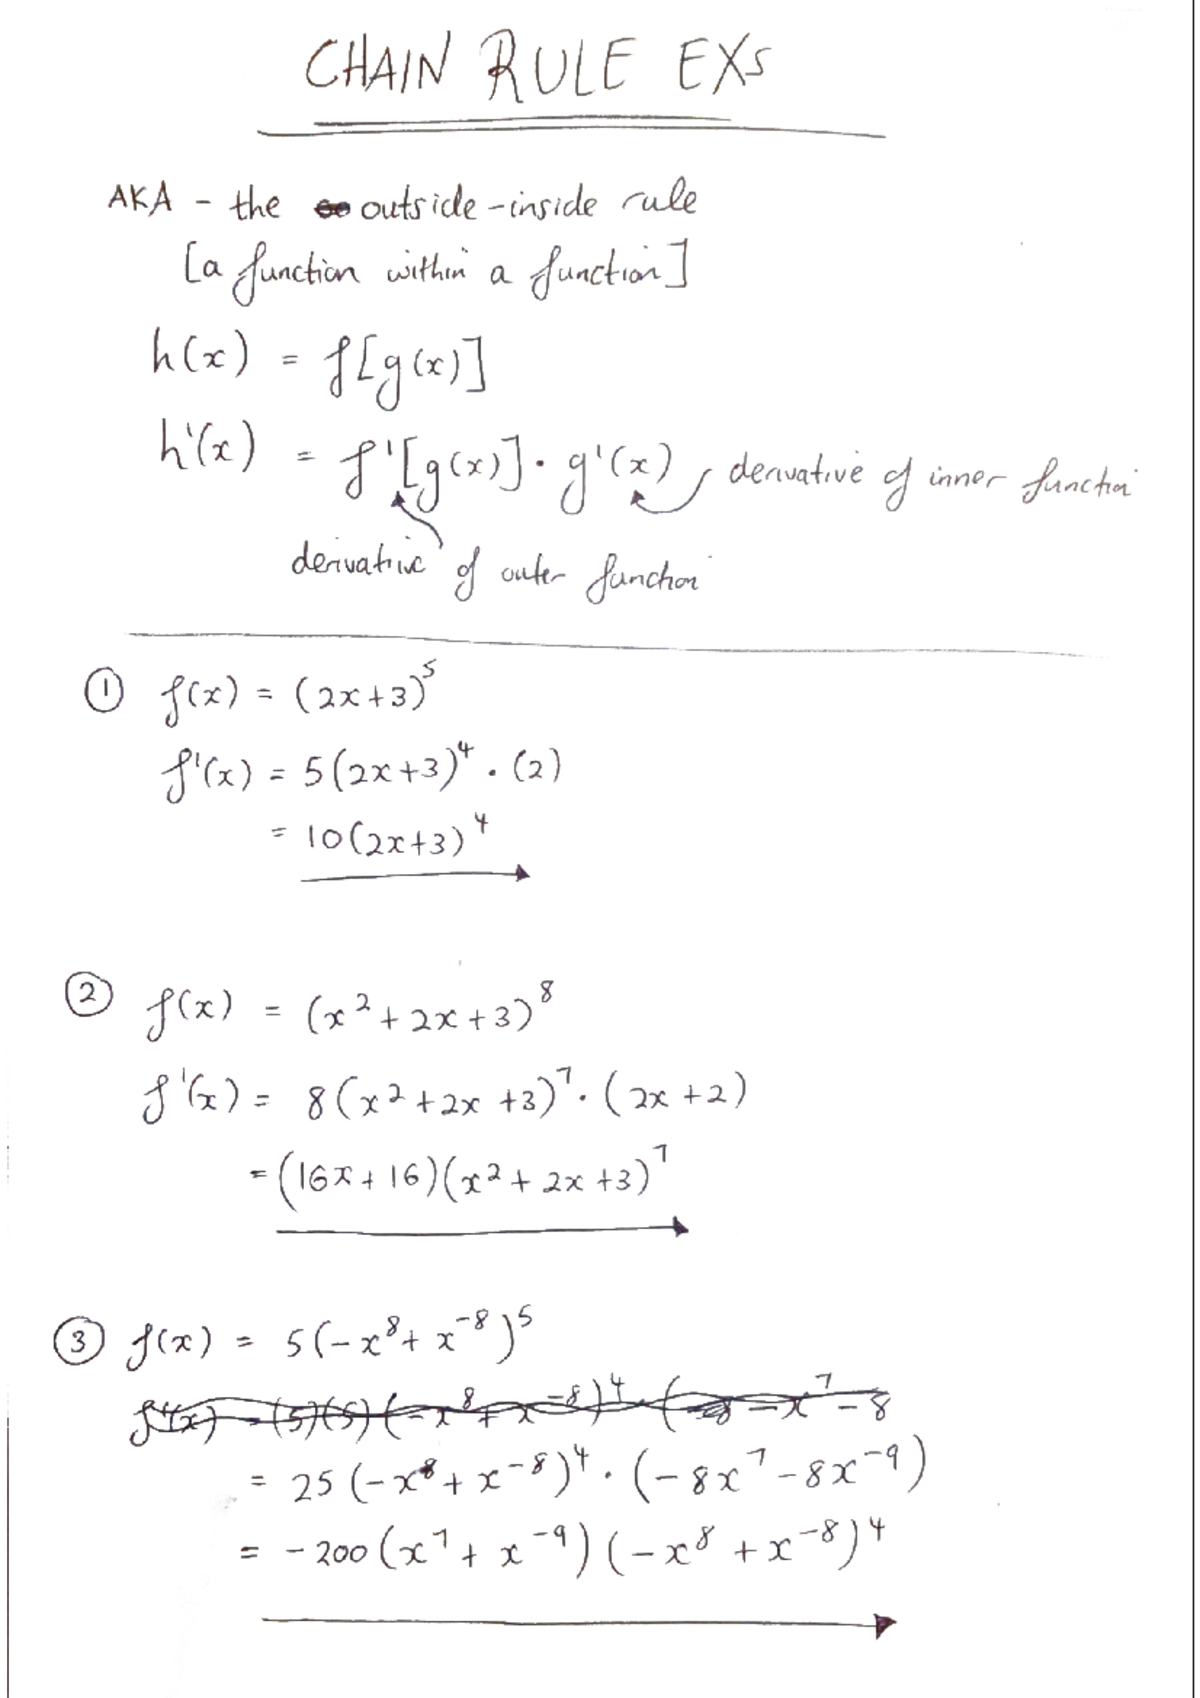 CHAIN RULE EXs
AKA - the outside-inside rule
[a function within a function]
h(x) = f[g(x)]
h'(x) = f'[g(x)] · g'(x) derivative of inner function
derivative of outer function
① f(x) = (2x+3)⁵
f'(x) = 5(2x+3)⁴ · (2)
= 10(2x+3)⁴
② f(x) = (x²+2x+3)⁸
f'(x) = 8(x²+2x+3)⁷ · (2x+2)
= (16x+16)(x²+2x+3)⁷
③ f(x) = 5(-x⁸+x⁻⁸)⁵
= 25(-x⁸+x⁻⁸)⁴ · (-8x⁷-8x⁻⁹)
= -200(x⁷+x⁻⁹)(-x⁸+x⁻⁸)⁴